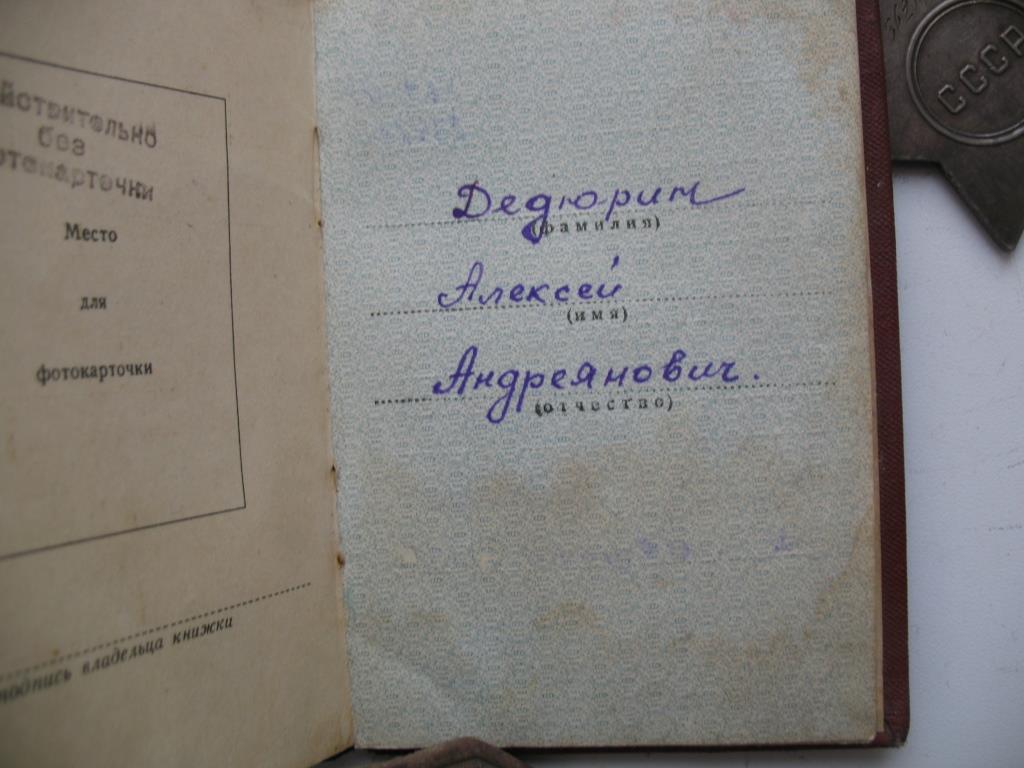 йствительно
без
фотокарточки
Место
для
фотокарточки
подпись владельца книжки
Дедюрин
(фамилия)
Алексей
(имя)
Андреянович.
(отчество)
СССР